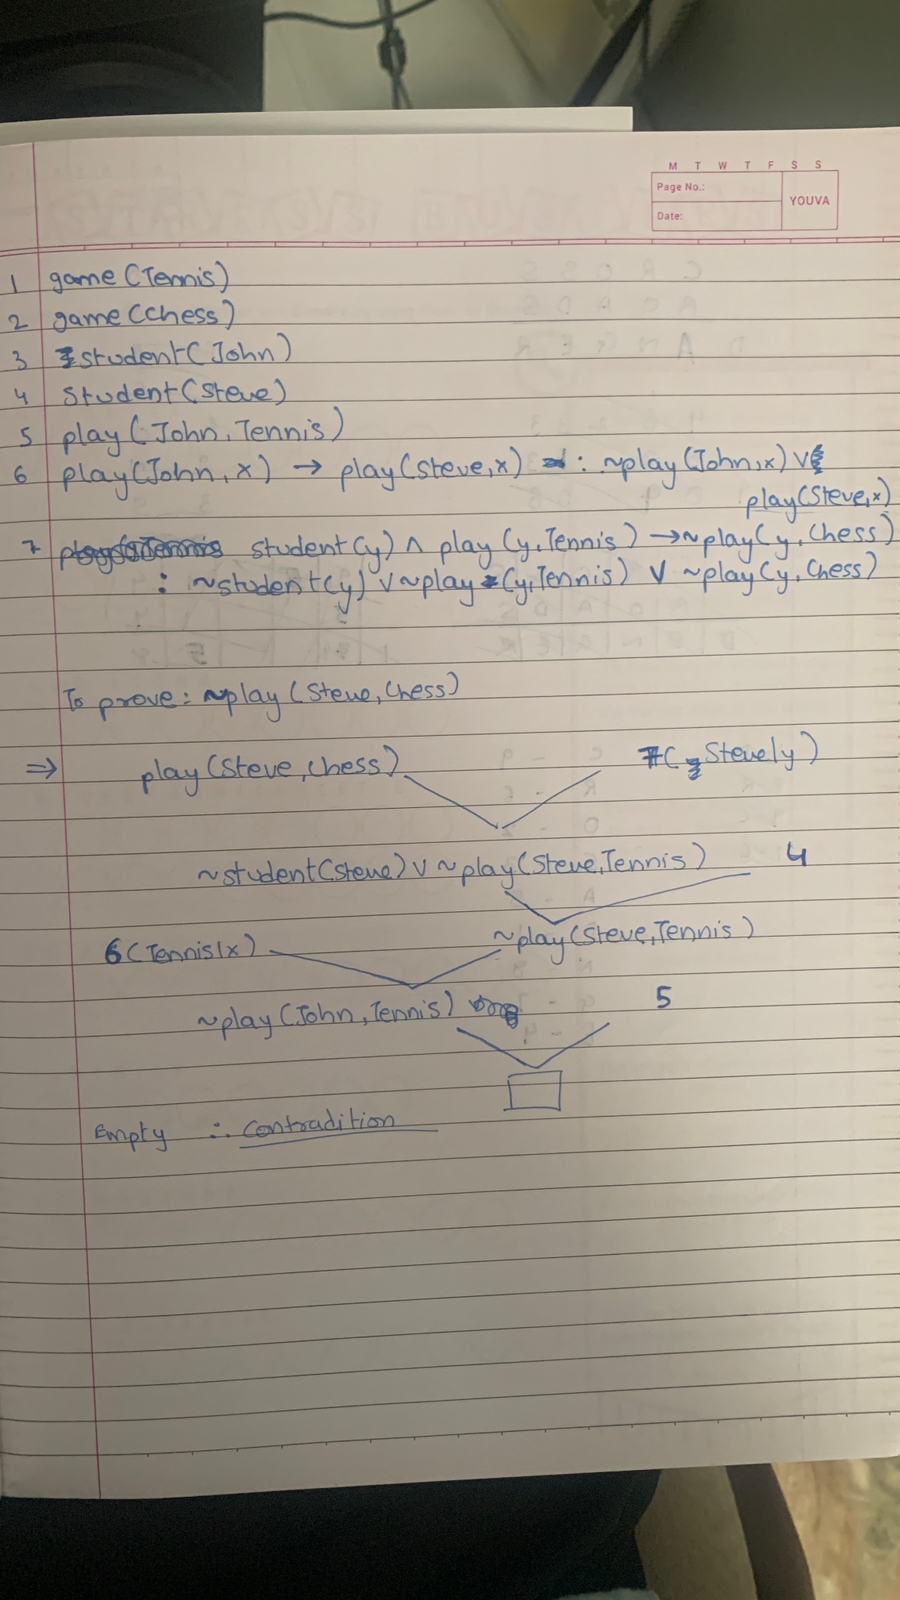 M T W T F S S
Page No.:
YOUVA
Date:
1 game (Tennis)
2 game (Chess)
3 student (John)
4 Student (Steve)
5 play (John, Tennis)
6 play (John, x) → play (Steve, x) : ~play (John, x) ∨
play (Steve, x)
7 student (y) ∧ play (y, Tennis) → ~play (y, Chess)
: ~student (y) ∨ ~play (y, Tennis) ∨ ~play (y, Chess)
To prove: ~play (Steve, Chess)
⇒ play (Steve, Chess) 7 ( Steve|y )
~student (Steve) ∨ ~play (Steve, Tennis) 4
~play (Steve, Tennis)
6 (Tennis|x)
~play (John, Tennis) 5
Empty ∴ Contradition